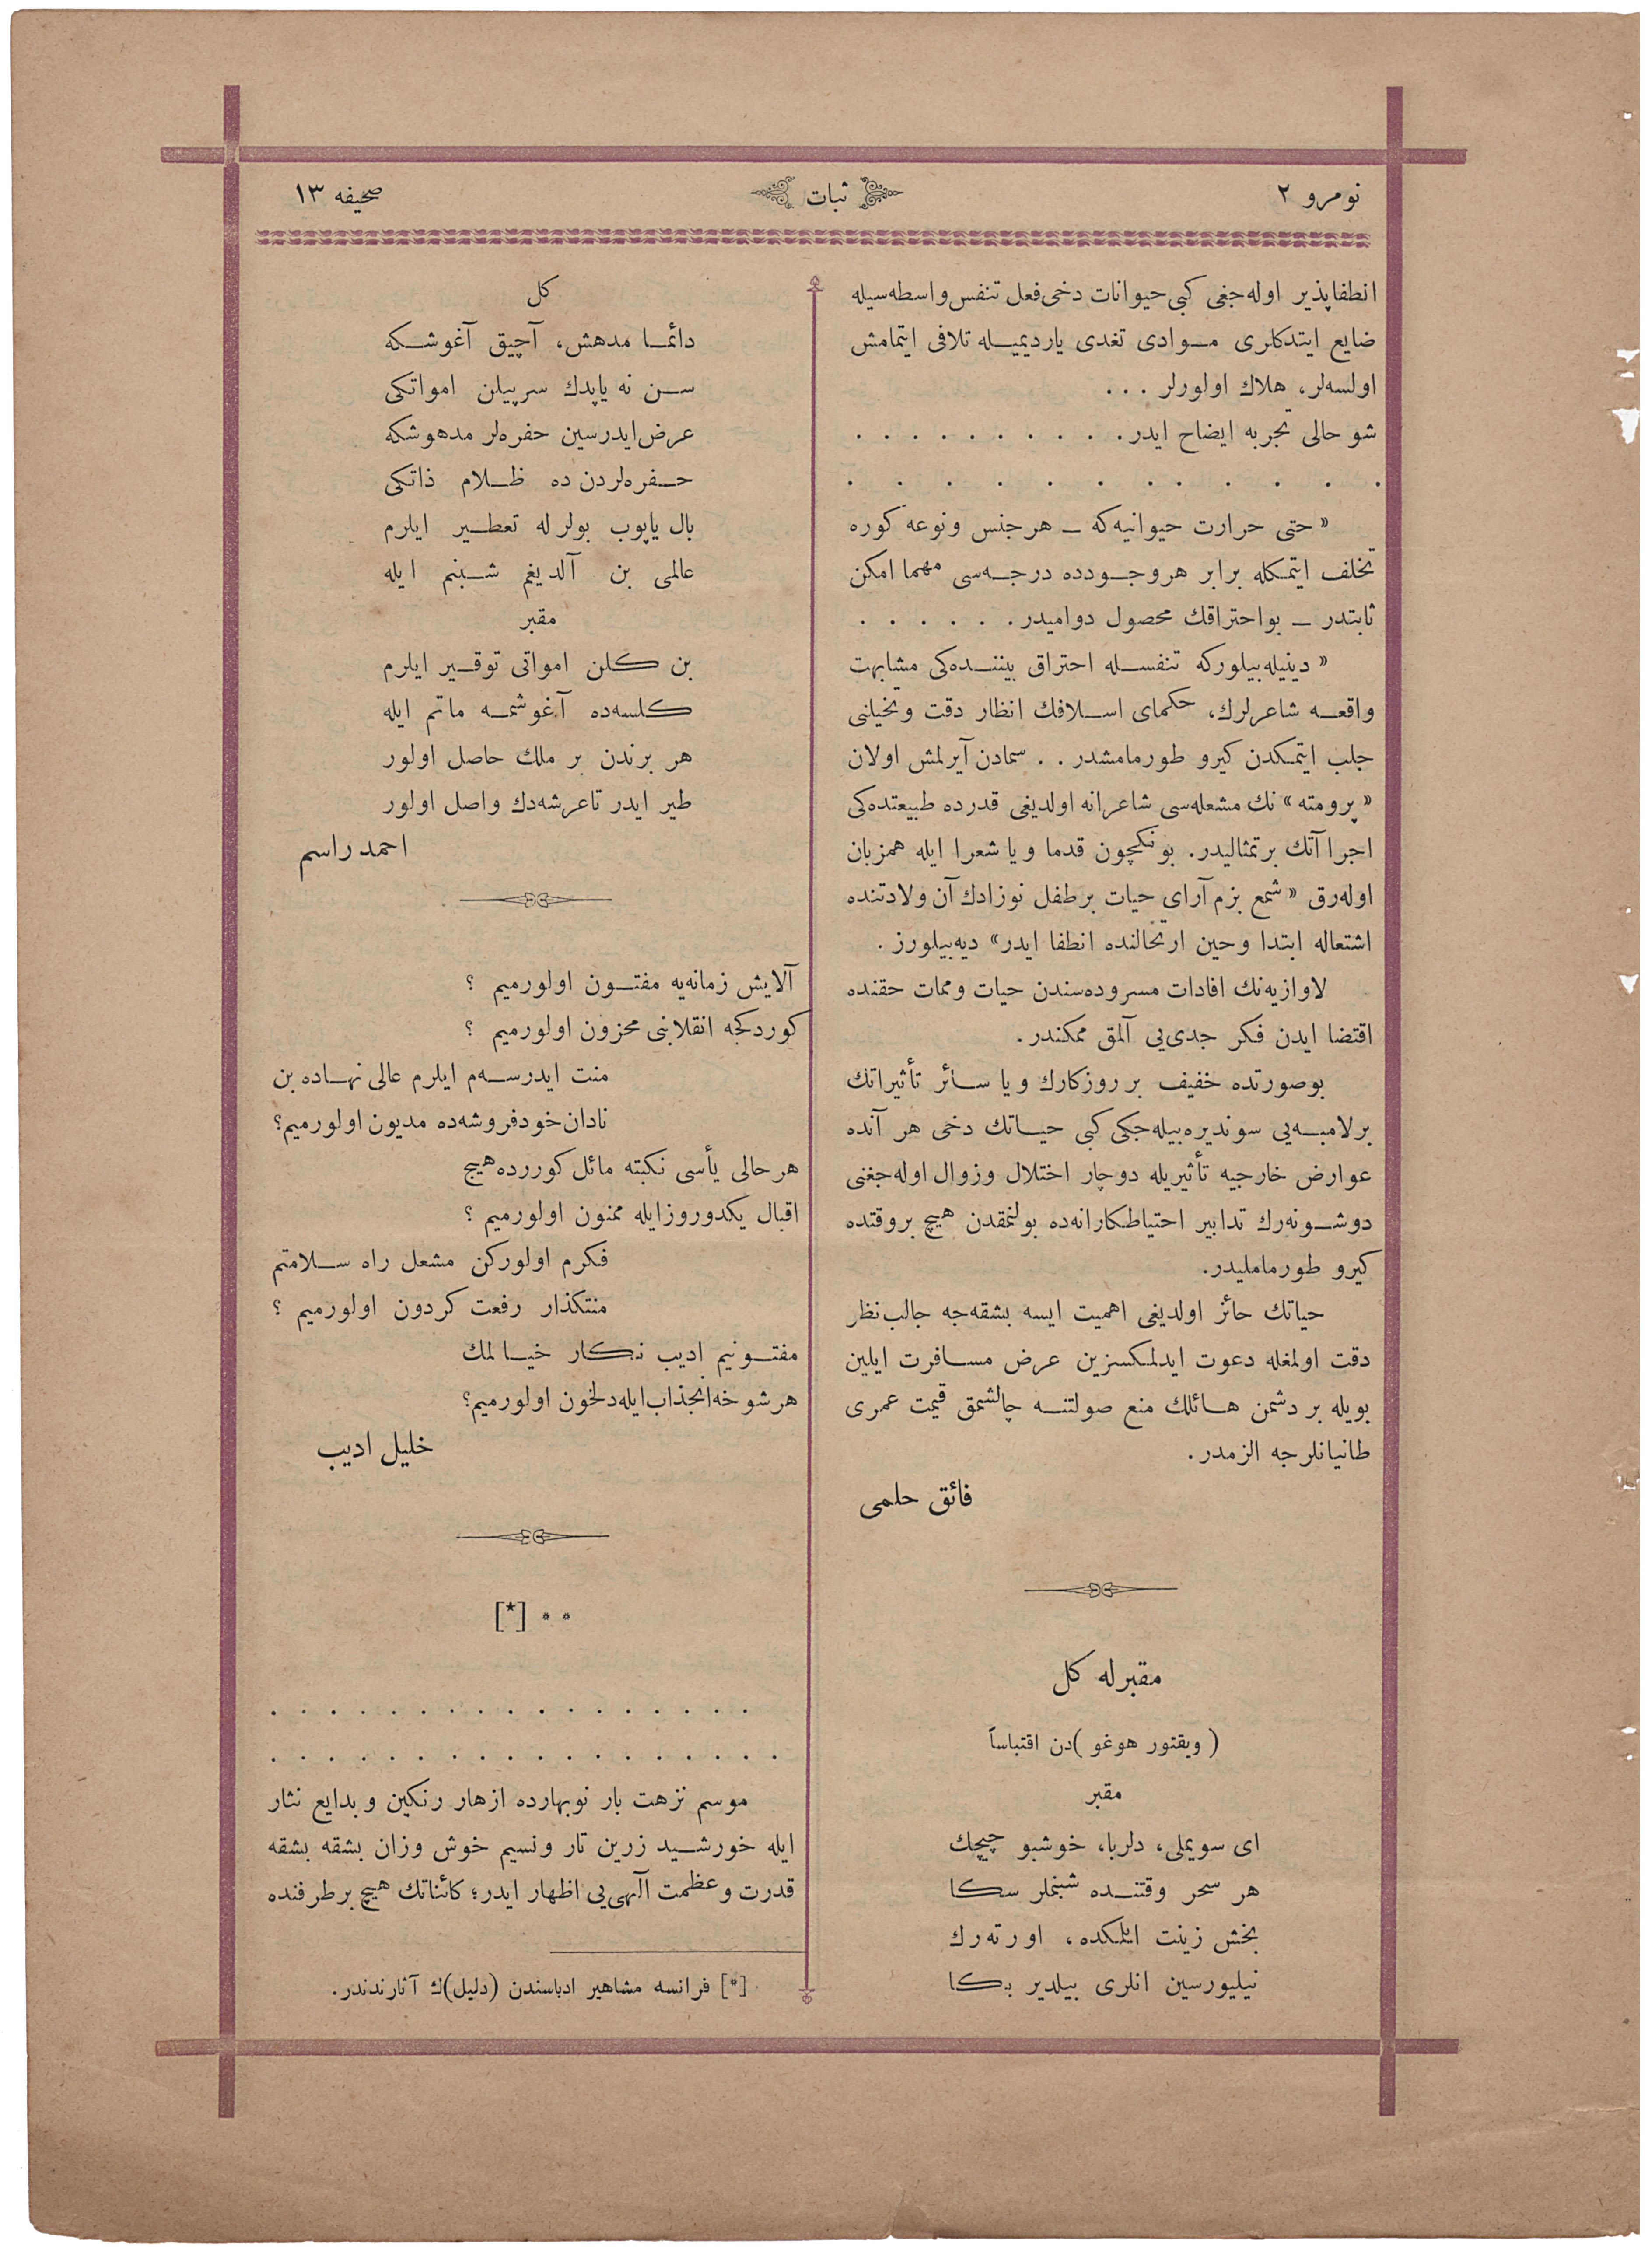 نومرو ٢
ثبات
صحيفه ١٣
انطفاپذير اوله‌جغى كبى حيوانات دخى فعل تنفس واسطه‌سيله
ضايع ايتدكلرى موادى تغدى يارديميله تلافى ايتمامش
اولسه‌لر، هلاك اولورلر . . .
شو حالى تجربه ايضاح ايدر. . . . . . . . . . .
. . . . . . . . . . . .
« حتى حرارت حيوانيه‌كه ــ هرجنس ونوعه كوره
تخلف ايتمكله برابر هروجودده درجه‌سى مهما امكن
ثابتدر ــ بواحتراقك محصول دواميدر. . . . . . .
« دينيله‌بيلوركه تنفسله احتراق بيننده‌كى مشابهت
واقعه شاعرلرك، حكماى اسلافك انظار دقت وتخيلنى
جلب ايتمكدن كيرو طورمامشدر . . سمادن آيرلمش اولان
« پرومته » نك مشعله‌سى شاعرانه اولديغى قدرده طبيعتده‌كى
اجراآتك برتمثاليدر. بونكچون قدما ويا شعرا ايله همزبان
اوله‌رق « شمع بزم آراى حيات برطفل نوزادك آن ولادتنده
اشتعاله ابتدا وحين ارتحالنده انطفا ايدر» ديه‌بيلورز .
لاوازيه‌نك افادات مسروده‌سندن حيات وممات حقنده
اقتضا ايدن فكر جدى‌يى آلمق ممكندر.
بوصورتده خفيف بر روزكارك ويا سائر تأثيراتك
برلامبه‌يى سونديره‌بيله‌جكى كبى حياتك دخى هر آنده
عوارض خارجيه تأثيريله دوچار اختلال وزوال اوله‌جغنى
دوشونه‌رك تدابير احتياطكارانه‌ده بولنمقدن هيچ بروقتده
كيرو طورماملىدر.
حياتك حائز اولديغى اهميت ايسه بشقه‌جه جالب‌نظر
دقت اولمغله دعوت ايدلمكسزين عرض مسافرت ايلين
بويله بر دشمن هائلك منع صولتنه چالشمق قيمت عمرى
طانيانلرجه الزمدر.
فائق حلمى
مقبرله كل
( ويقتور هوغو )دن اقتباساً
مقبر
اى سويملى، دلربا، خوشبو چيچك
هر سحر وقتنده شبنملر سكا
بخش زينت ايلكده، اورته‌رك
نيليورسين انلرى بيلدير بكا
كل
دائما مدهش، آچيق آغوشكه
سن نه ياپدك سرپيلن امواتكى
عرض‌ايدرسين حفره‌لر مدهوشكه
حفره‌لردن ده ظلام ذاتكى
بال ياپوب بولر له تعطير ايلرم
عالمى بن آلديغم شبنم ايله
مقبر
بن كلن امواتى توقير ايلرم
كلسه‌ده آغوشمه ماتم ايله
هر برندن بر ملك حاصل اولور
طير ايدر تاعرشه‌دك واصل اولور
احمد راسم
آلايش زمانه‌يه مفتون اولورميم ؟
كوردكجه انقلابنى محزون اولورميم ؟
منت ايدرسه‌م ايلرم عالى نهاده بن
نادان خودفروشه‌ده مديون اولورميم؟
هر حالى يأسى نكبته مائل كوررده هيچ
اقبال يكدوروزايله ممنون اولورميم ؟
فكرم اولوركن مشعل راه سلامتم
منتكذار رفعت كردون اولورميم ؟
مفتونيم اديب نكار خيالمك
هرشوخه‌انجذاب‌ايله‌دلخون اولورميم؟
خليل اديب
* * [*]
. . . . . . . . . . . . . . . . .
. . . . . . . . . . . . . . . . . .
موسم نزهت بار نوبهارده ازهار رنكين وبدايع نثار
ايله خورشيد زرين تار ونسيم خوش وزان بشقه بشقه
قدرت وعظمت آلهى‌يى اظهار ايدر؛ كائناتك هيچ برطرفنده
[*] فرانسه مشاهير ادباسندن (دليل)ك آثارندندر.